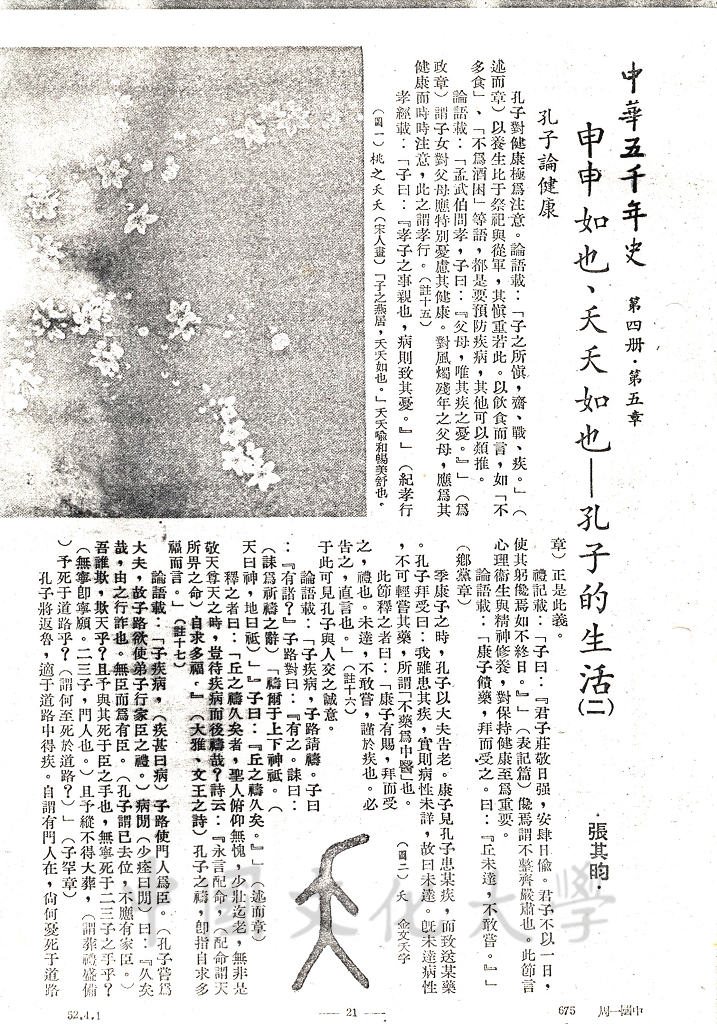 中華五千年史 第四册・第五章
申申如也、夭夭如也—孔子的生活(二)
・張其昀・
孔子論健康
孔子對健康極爲注意。論語載：「子之所愼，齋、戰、疾。」（
述而章）以養生比于祭祀與從軍，其愼重若此。以飲食而言，如「不
多食」、「不爲酒困」等語，都是要預防疾病，其他可以類推。
論語載：「孟武伯問孝，子曰：『父母，唯其疾之憂。』」（爲
政章）謂子女對父母應特別憂慮其健康。對風燭殘年之父母，應爲其
健康而時時注意，此之謂孝行。（註十五）
孝經載：「子曰：『孝子之事親也，病則致其憂。』」（紀孝行
（圖一）桃之夭夭（宋人畫）「子之燕居，夭夭如也。」夭夭喩和暢美舒也。
章）正是此義。
禮記載：「子曰：『君子莊敬日强，安肆日偸。君子不以一日，
使其躬儳焉如不終日。』」（表記篇）儳焉謂不整齊嚴肅也。此節言
心理衞生與精神修養，對保持健康至爲重要。
論語載：「康子饋藥，拜而受之。曰：『丘未達，不敢嘗。』」
（鄕黨章）
季康子之時，孔子以大夫告老。康子見孔子患某疾，而致送某藥
。孔子拜受曰：我雖患其疾，實則病性未詳，故曰未達。旣未達病性
，不可輕嘗其藥，所謂「不藥爲中醫」也。
此節釋之者曰：「康子有賜，拜而受
之，禮也。未達，不敢嘗，謹於疾也。必
告之，直言也。」（註十六）
于此可見孔子與人交之誠意。
論語載：「子疾病，子路請禱。子曰
：『有諸？』子路對曰：『有之。誄曰：
（誄爲祈禱之辭）「禱爾于上下神祗。（
天曰神，地曰祗）」』子曰：『丘之禱久矣。』」（述而章）
釋之者曰：「丘之禱久矣者，聖人俯仰無愧，少壯迄老，無非是
敬天尊天之時，豈待疾病而後禱哉？詩云：『永言配命，（配命謂天
所畀之命）自求多福。』（大雅、文王之詩）孔子之禱，卽指自求多
福而言。」（註十七）
論語載：「子疾病，（疾甚曰病）子路使門人爲臣。（孔子嘗爲
大夫，故子路欲使弟子行家臣之禮。）病閒（少痊曰閒）曰：『久矣
哉，由之行詐也。無臣而爲有臣。（孔子謂已去位，不應有家臣。）
吾誰欺，欺天乎？且予與其死于臣之手也，無寧死于二三子之手乎？
（無寧卽寧願。二三子，門人也。）且予縱不得大葬，（謂葬禮盛備
）予死于道路乎？（謂何至死於道路？）」（子罕章）
孔子將返魯，適于道路中得疾。自謂有門人在，尙何憂死于道路
（圖二）夭 金文大字
中國文化大學
52.4.1
— 21 —
675 中國一周